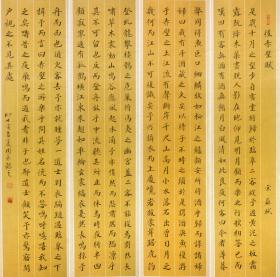 後赤壁賦
宋 蘇軾
是歲十月之望步自雪堂將歸於臨皋二客從予過黃泥之坂霜
露既降木葉盡脫人影在地仰見明月顧而樂之行歌相答已
而歎曰有客無酒有酒無肴月白風清如此良夜何客曰今者薄暮
舉網得魚巨口細鱗狀如松江之鱸顧安所得酒乎歸而謀諸
婦婦曰我有斗酒藏之久矣以待子不時之需於是攜酒與魚復遊
於赤壁之下江流有聲斷岸千尺山高月小水落石出曾日月之
幾何而江山不可復識矣予乃攝衣而上履巉巖披蒙茸踞虎豹
登虯龍攀棲鶻之危巢俯馮夷之幽宮蓋二客不能從焉劃然長
嘯草木震動山鳴谷應風起水湧予亦悄然而悲肅然而恐凜乎
其不可留也反而登舟放乎中流聽其所止而休焉時夜將半四
顧寂寥適有孤鶴橫江東來翅如車輪玄裳縞衣戛然長鳴掠予
舟而西也須臾客去予亦就睡夢一道士羽衣翩躚過臨皋之下
揖予而言曰赤壁之遊樂乎問其姓名俛而不答嗚呼噫嘻我知
之矣疇昔之夜飛鳴而過我者非子也耶道士顧笑予亦驚寤開
戶視之不見其處